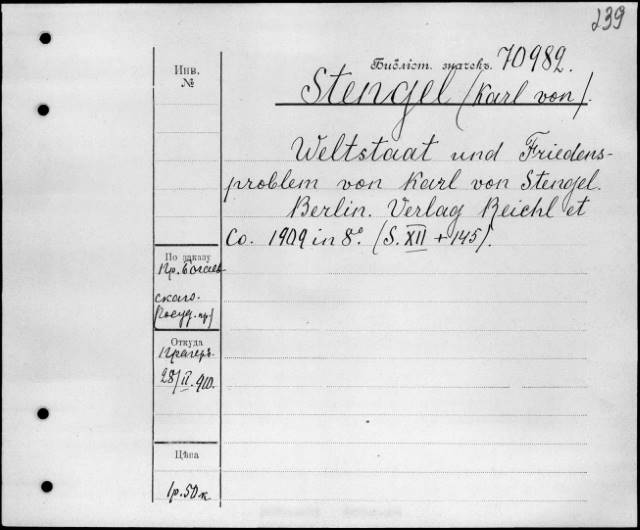 239
Библіот. значекъ 70982.
Инв.
№
Stengel (Karl von).
Weltstaat und Friedens-
problem von Karl von Stengel.
Berlin. Verlag Reichl et
Co. 1909 in 8°. (S. XII + 145).
По заказу
скаго.
Откуда
Прагеръ
28/II. 910.
Цѣна
1р. 50 к